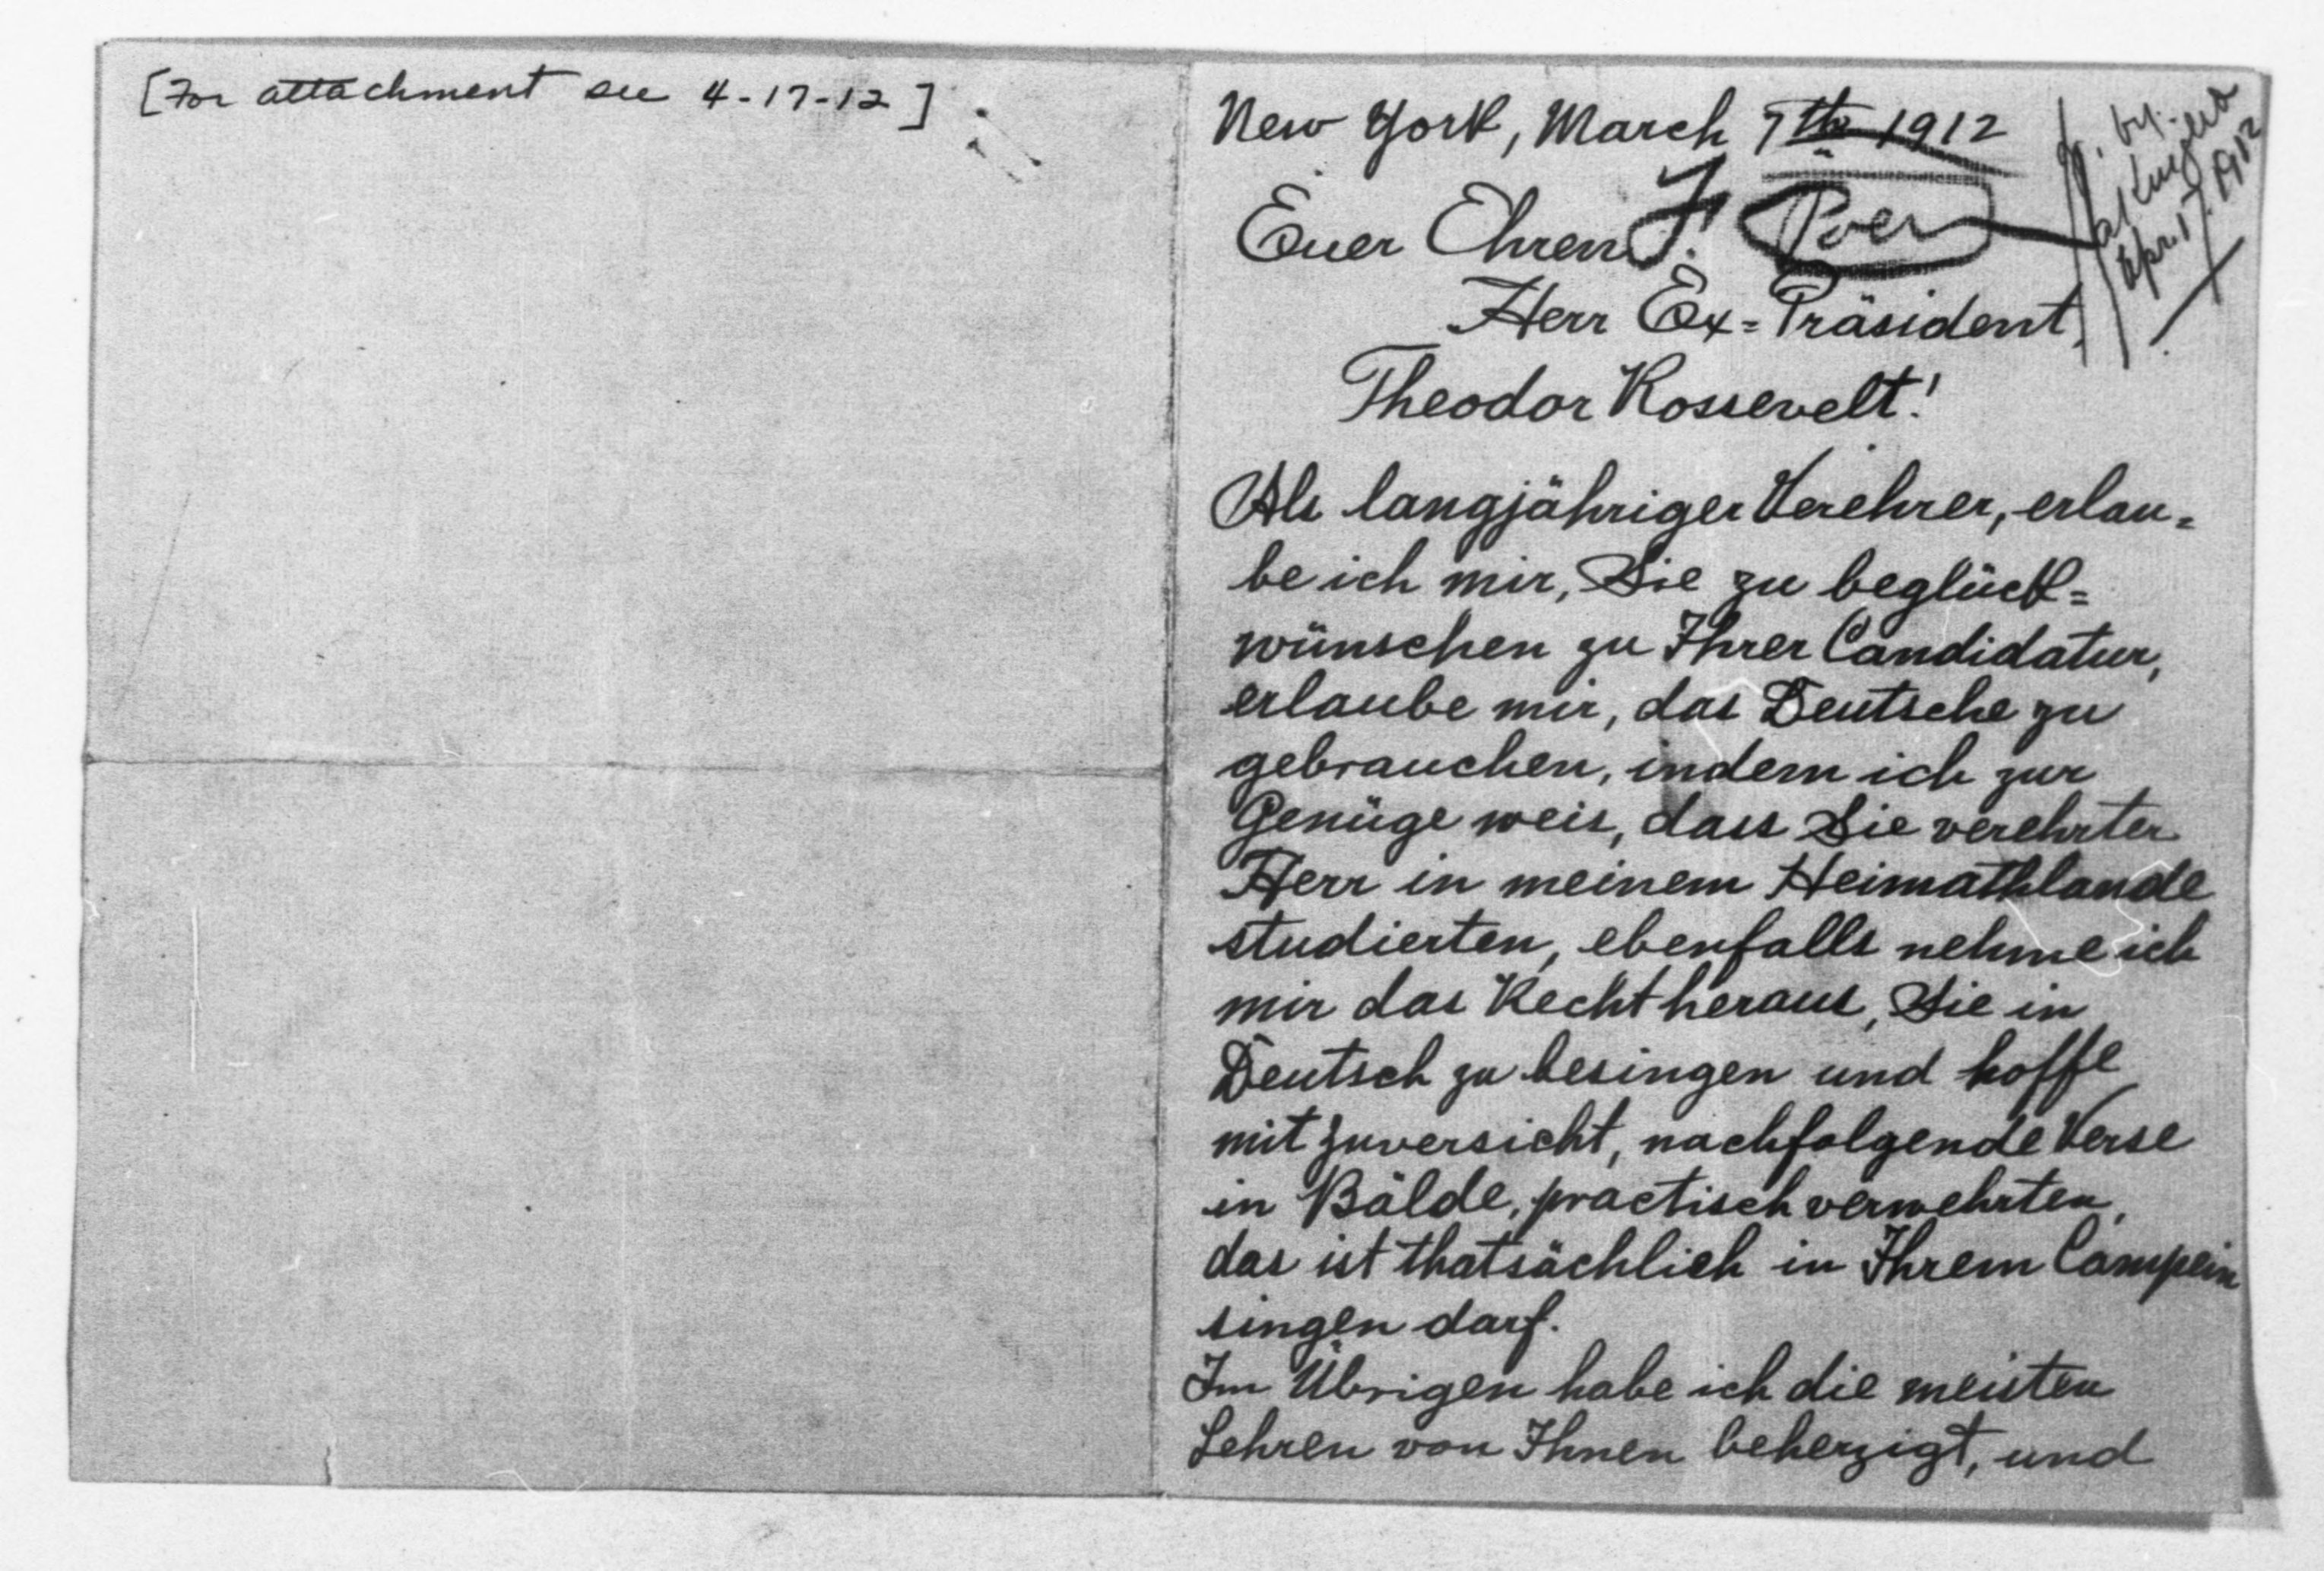 [For attachment see 4-17-12]
New York, March 7th 1912
Euer Ehren!
Herr Ex=Präsident,
Theodor Rossevelt!
Als langjähriger Verehrer, erlau=
be ich mir, Sie zu beglück=
wünschen zu Ihrer Candidatur,
erlaube mir, das Deutsche zu
gebrauchen, indem ich zur
Genüge weis, dass Sie verehrter
Herr in meinem Heimathlande
studierten, ebenfalls nehme ich
mir das Recht heraus, Sie in
Deutsch zu besingen und hoffe
mit Zuversicht, nachfolgende Verse
in Bälde, practisch verwehrten,
das ist thatsächlich in Ihrem Campein
singen darf.
Im Übrigen habe ich die meisten
Lehren von Ihnen beherzigt, und
Apr. 17. 1912